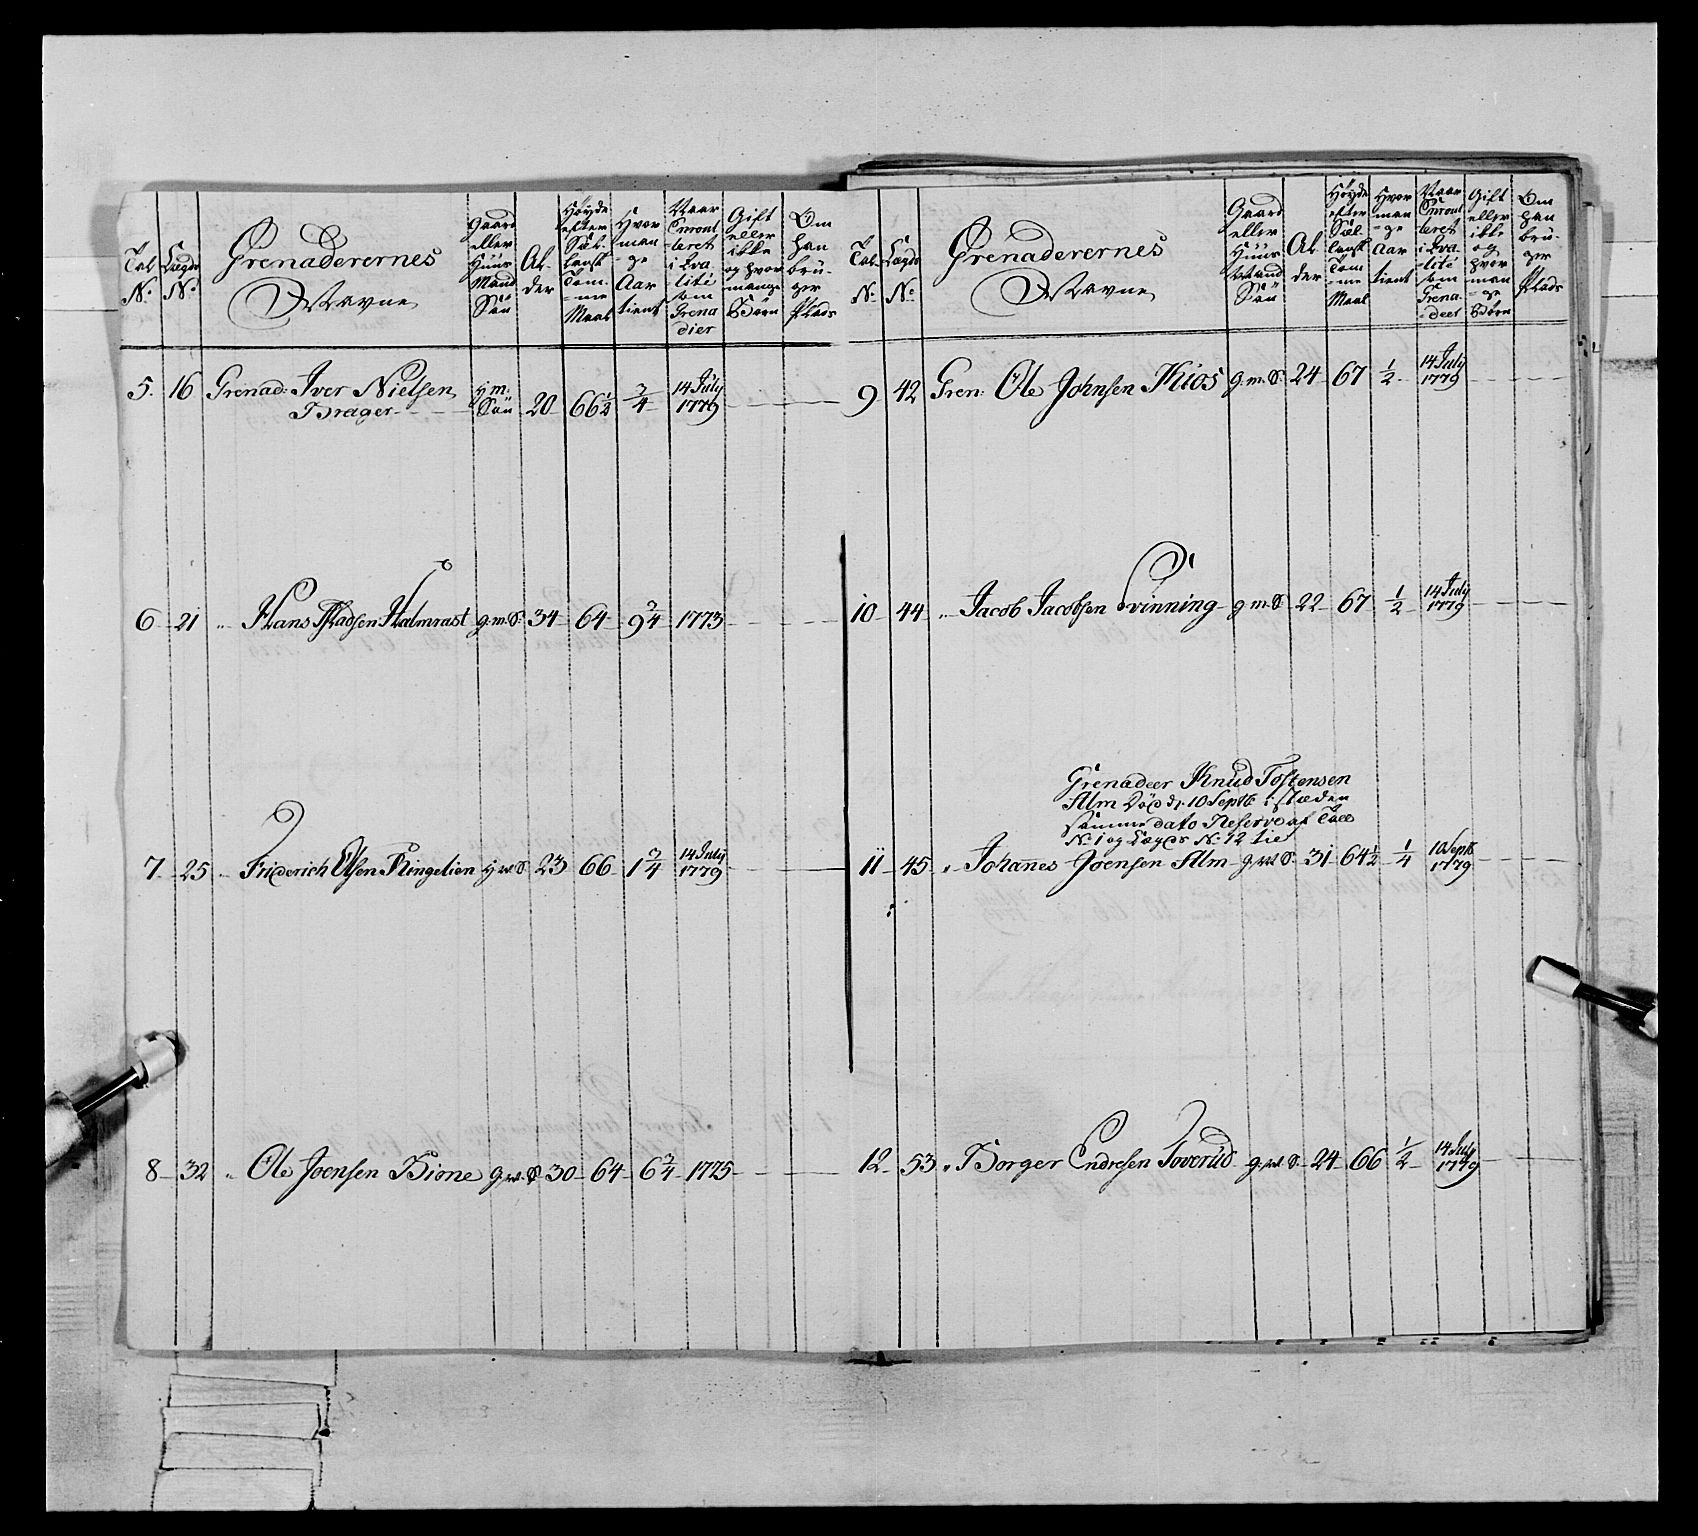 Tal N:
Lægds N:
Grenaderernes Navne
Gaard eller Huus Mand Søn
Alder
Høyde efter Sæl-landsk Tomme Maal
Hvor mange Aar tient
Naar Enroulleret i Qvalité som Grenadier
Gift eller ikke og hvor mange Børn
Om han bruger Plads
5. 16 Grenad: Iver Nielsen H m:
Brager Søn 20 66½ ¾ 14 July 1779
6 21 " Hans Madsen Halmrast g.m.S. 34 64 9¾ 1773
7 25 " Friderich Olsen Ringelien H m S 23 66 1¾ 14 July 1779
8 32 " Ole Joensen Bione g.m.S 30 64 6¾ 1775
Tal N:
Lægds N:
Grenaderernes Navne
Gaard eller Huus Mand Søn
Alder
Høyde efter Sæl-landsk Tomme Maal
Hvor mange Aar tient
Naar Enroulleret i Qvalité som Grenadeer
Gift eller ikke og hvor mange Børn
Om han bruger Plads
9 42 Gren: Ole Johnsen Kios g.m.S. 24 67 ½ 14 July 1779
10 44 " Jacob Jacobsen Svinning g m S 22 67 ½ 14 July 1779
Grenadeer Knud Tostensen
Alm Död d: 10 Septb: i stæden
samme dato Reserve af
N: 1 og Lægds N: 12
11 45 " Johanes Joensen Alm g.m S. 31 64½ ¼ 10 Septb: 1779
12 53 " Borger Endresen Toverud g.m S. 24 66 ½ 14 July 1779